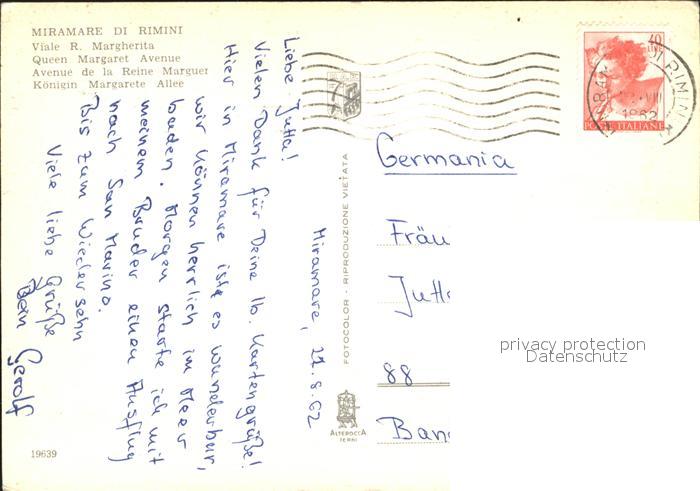 MIRAMARE DI RIMINI
Viale R. Margherita
Queen Margaret Avenue
Avenue de la Reine Marguer
Königin Margarete Allee
Miramare, 21.8.62
Liebe Jutta!
Vielen Dank für Deine lb. Kartengrüße!
Hier in Miramare ist es wunderbar,
wir können herrlich im Meer
baden. Morgen starte ich mit
meinem Bruder einen Ausflug
nach San Marino.
Bis zum Wiedersehn
Viele liebe Grüße
Dein Gerolf
19639
FOTOCOLOR - RIPRODUZIONE VIETATA
ALTEROCCA
TERNI
40
LIRE
POSTE ITALIANE
RIMINI
VIII
1962
Germania
Fräu
Jutt
88
Ban
privacy protection
Datenschutz